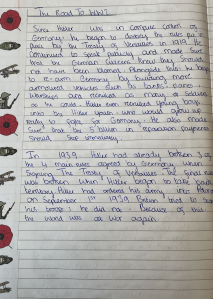 The Road To WW2
Since Hitler was in complete control of
Germany he began to destroy the rules put in
place by the Treaty of Versailles in 1919. He
continued to secret publicly and made sure
that the German citizens knew they should
not have been Alongside this he began
to re-arm Germany by building more
armoured vehicles such as tanks, planes
and recruited as many soldiers
as he could. Hitler even recruited young boys
into the Hitler Youth, who would grow up
ready to fight for Germany. He also made
sure that the 5 billion in reparation payments
should stop immediately.
In 1939, Hitler had already broken 3 of
the 4 main rules agreed by Germany when
signing The Treaty of Versailles. The final rule
was broken when Hitler began to take land
Hitler had ordered his army into Poland
on September 1st 1939. Britain tried to
his troops, he did not. Because of this
the world was at war again